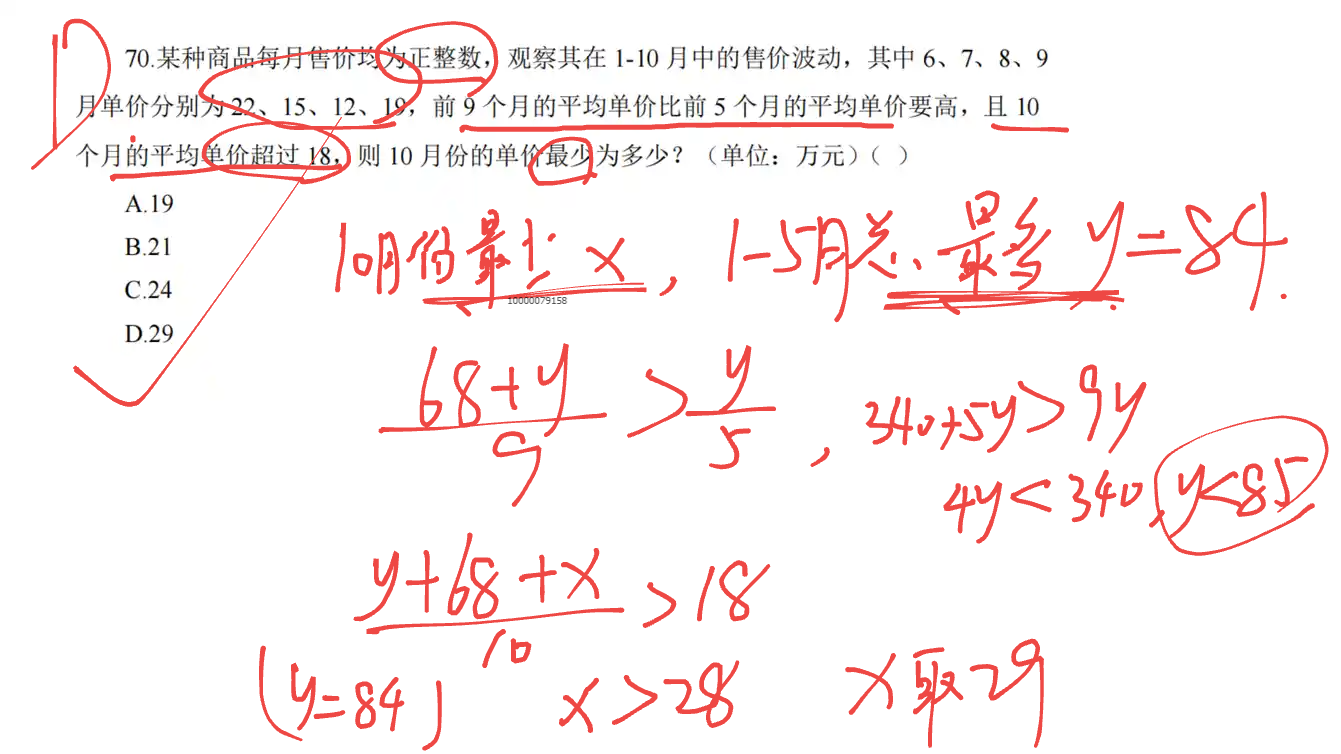 D
70.某种商品每月售价均为正整数，观察其在 1-10 月中的售价波动，其中 6、7、8、9
月单价分别为 22、15、12、19，前 9 个月的平均单价比前 5 个月的平均单价要高，且 10
个月的平均单价超过 18，则 10 月份的单价最少为多少？（单位：万元）（ ）
A.19
B.21
C.24
D.29
10月份最少 x，1-5月总、最多 y=84.
10000079158
68+y/9 > y/5，340+5y>9y
4y<340，y<85
y+68+x/10 >18
(y=84) x>28 x取29